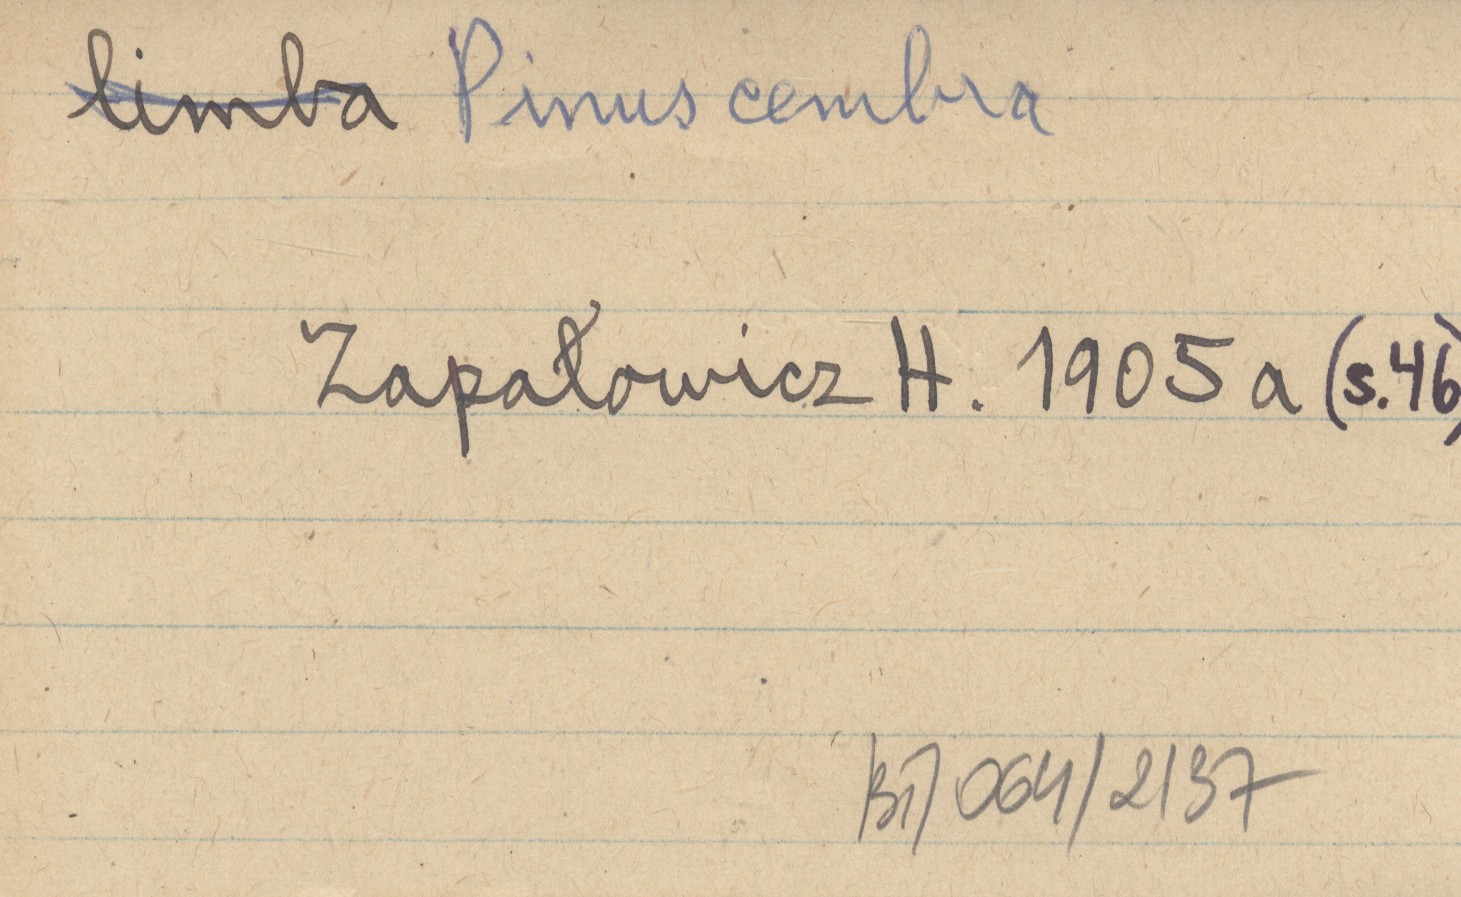 limba Pinus cembra
Zapałowicz H. 1905 a (s.46)
064/2137